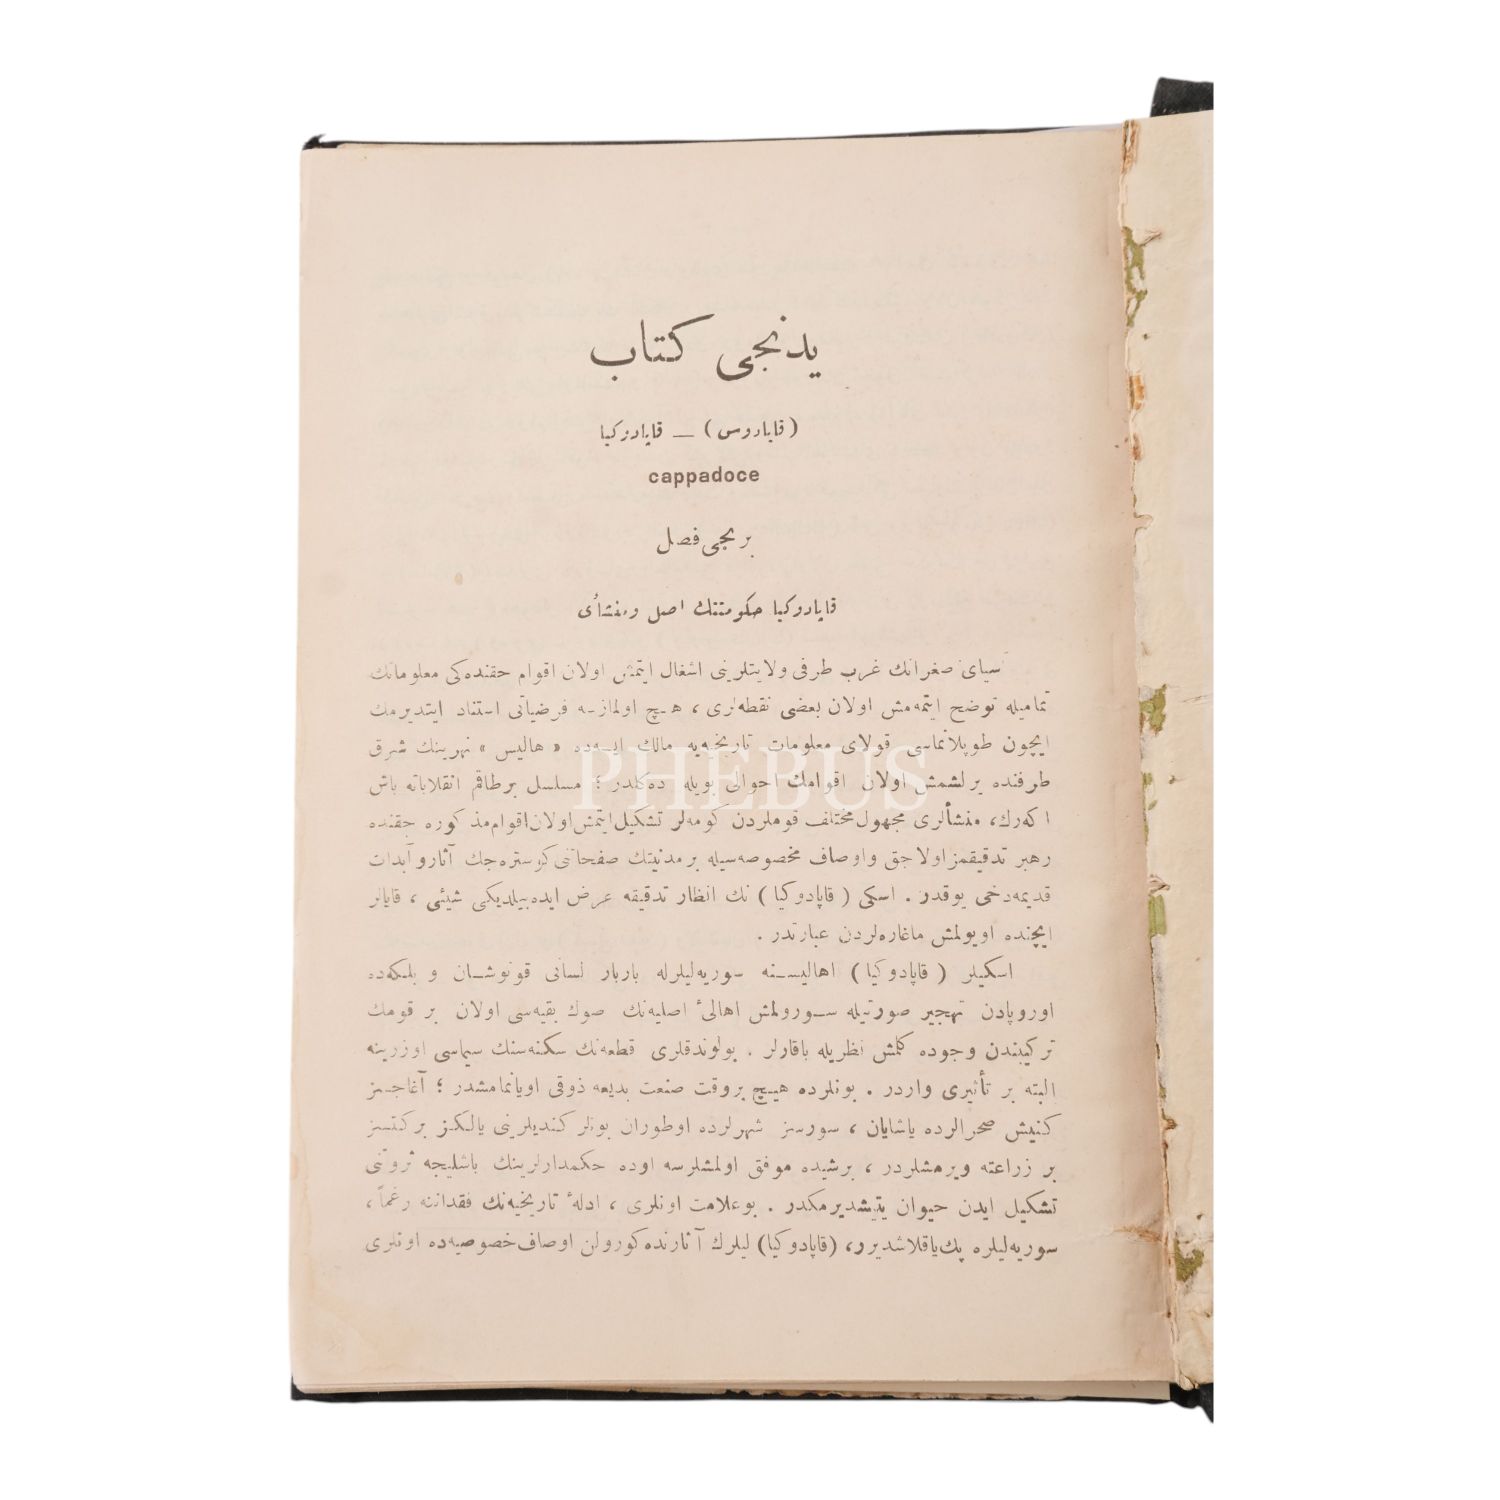 یدنجی کتاب
(قاپادوس) — قاپادوکیا
cappadoce
برنجی فصل
قاپادوکیا حکومتنك اصل ومنشأی
آسیای صغرانك غرب طرفی ولایتلرینی اشغال ایتمش اولان اقوام حقنده‌کی معلوماتك
تمامیله توضح ایتمه‌مش اولان بعضی نقطه‌لری ، هیچ اولمازسه فرضیاتی استناد ایتدیرمك
ایچون طوپلانماسی قولای معلومات تاریخیه‌یه مالك ایسه‌ده « هالیس » نهرینك شرق
طرفنده یرلشمش اولان اقوامك احوالی بویله دکلدر ؛ مسلسل برطاقم انقلاباته باش
اکه‌رك، منشألری مجهول مختلف قوملردن کومه‌لر تشکیل ایتمش اولان اقوام مذکوره حقنده
رهبر تدقیقمز اولاجق واوصاف مخصوصه‌سیله بر مدنیتك صفحاتنی کوستره‌جك آثار و آبدات
قدیمه‌دخی یوقدر . اسکی ( قاپادوکیا ) نك انظار تدقیقه عرض ایده‌بیلدیکی شیئی ، قایالر
ایچنده اویولمش ماغاره‌لردن عبارتدر .
اسکیلر ( قاپادوکیا ) اهالیسنه سوریه‌لیلرله باربار لسانی قونوشان و بلکه‌ده
اوروپادن تهجیر صورتیله سورولمش اهالیٔ اصلیه‌نك صوك بقیه‌سی اولان بر قومك
ترکیبندن وجوده کلمش نظریله باقارلر . بولوندقلری قطعه‌نك سکنه‌سنك سیماسی اوزرینه
البته بر تأثیری واردر . بونلرده هیچ بروقت صنعت بدیعه ذوقی اویانمامشدر ؛ آغاجسز
کنیش صحرالرده یاشایان ، سورسز شهرلرده اوطوران بونلر کندیلرینی یالکز برکتسز
بر زراعته ویرمشلردر ، برشیده موفق اولمشلرسه اوده حکمدارلرینك باشلیجه ثروتنی
تشکیل ایدن حیوان یتیشدیرمکدر . بوعلامت اونلری ، ادلهٔ تاریخیه‌نك فقداننه رغماً ،
سوریه‌لیلره پك یاقلاشدیرر، (قاپادوکیا) لیلرك آثارنده کورولن اوصاف خصوصیه‌ده اونلری
PHEBUS